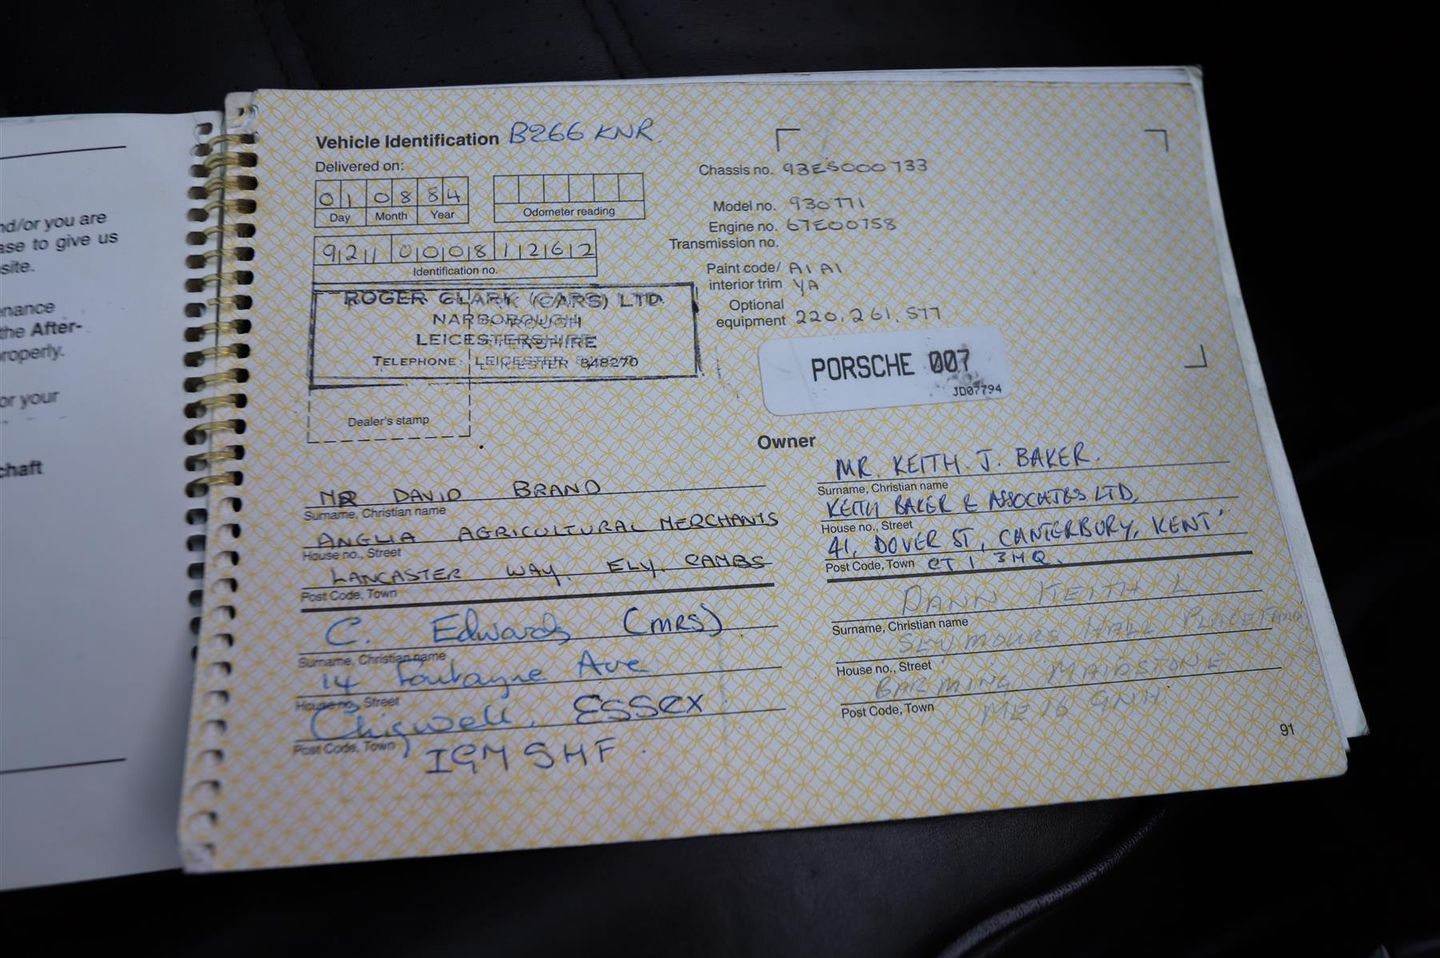 nd/or you are
ase to give us
site.
nance
the After-
roperly.
or your
chaft
Vehicle Identification B266 KNR
Delivered on:
01 08 84
Day Month Year
Odometer reading
921 0008 11262
Identification no.
ROGER CLARK (CARS) LTD.
NARBOROUGH
LEICESTERSHIRE
TELEPHONE: LEICESTER 848270
Dealer's stamp
Chassis no. 93ES000733
Model no. 930771
Engine no. 67E00758
Transmission no.
Paint code/ A1 A1
interior trim YA
Optional
equipment 220, 261, 577
PORSCHE 007
JD07794
Owner
MR DAVID BRAND
Surname, Christian name
ANGLIA AGRICULTURAL MERCHANTS
House no., Street
LANCASTER WAY, ELY, CAMBS
Post Code, Town
C. Edwards (MRS)
Surname, Christian name
14 Ave
House no., Street
Chigwell, ESSEX
Post Code, Town
MR. KEITH. J. BAKER.
Surname, Christian name
KEITH BAKER & ASSOCIATES LTD,
House no., Street
41, DOVER ST, CANTERBURY, KENT
Post Code, Town CT1 3HQ.
DANN KEITH L
Surname, Christian name
SEYMOURS HALL
House no., Street
BARMING MAIDSTONE
Post Code, Town ME16 9NH
91